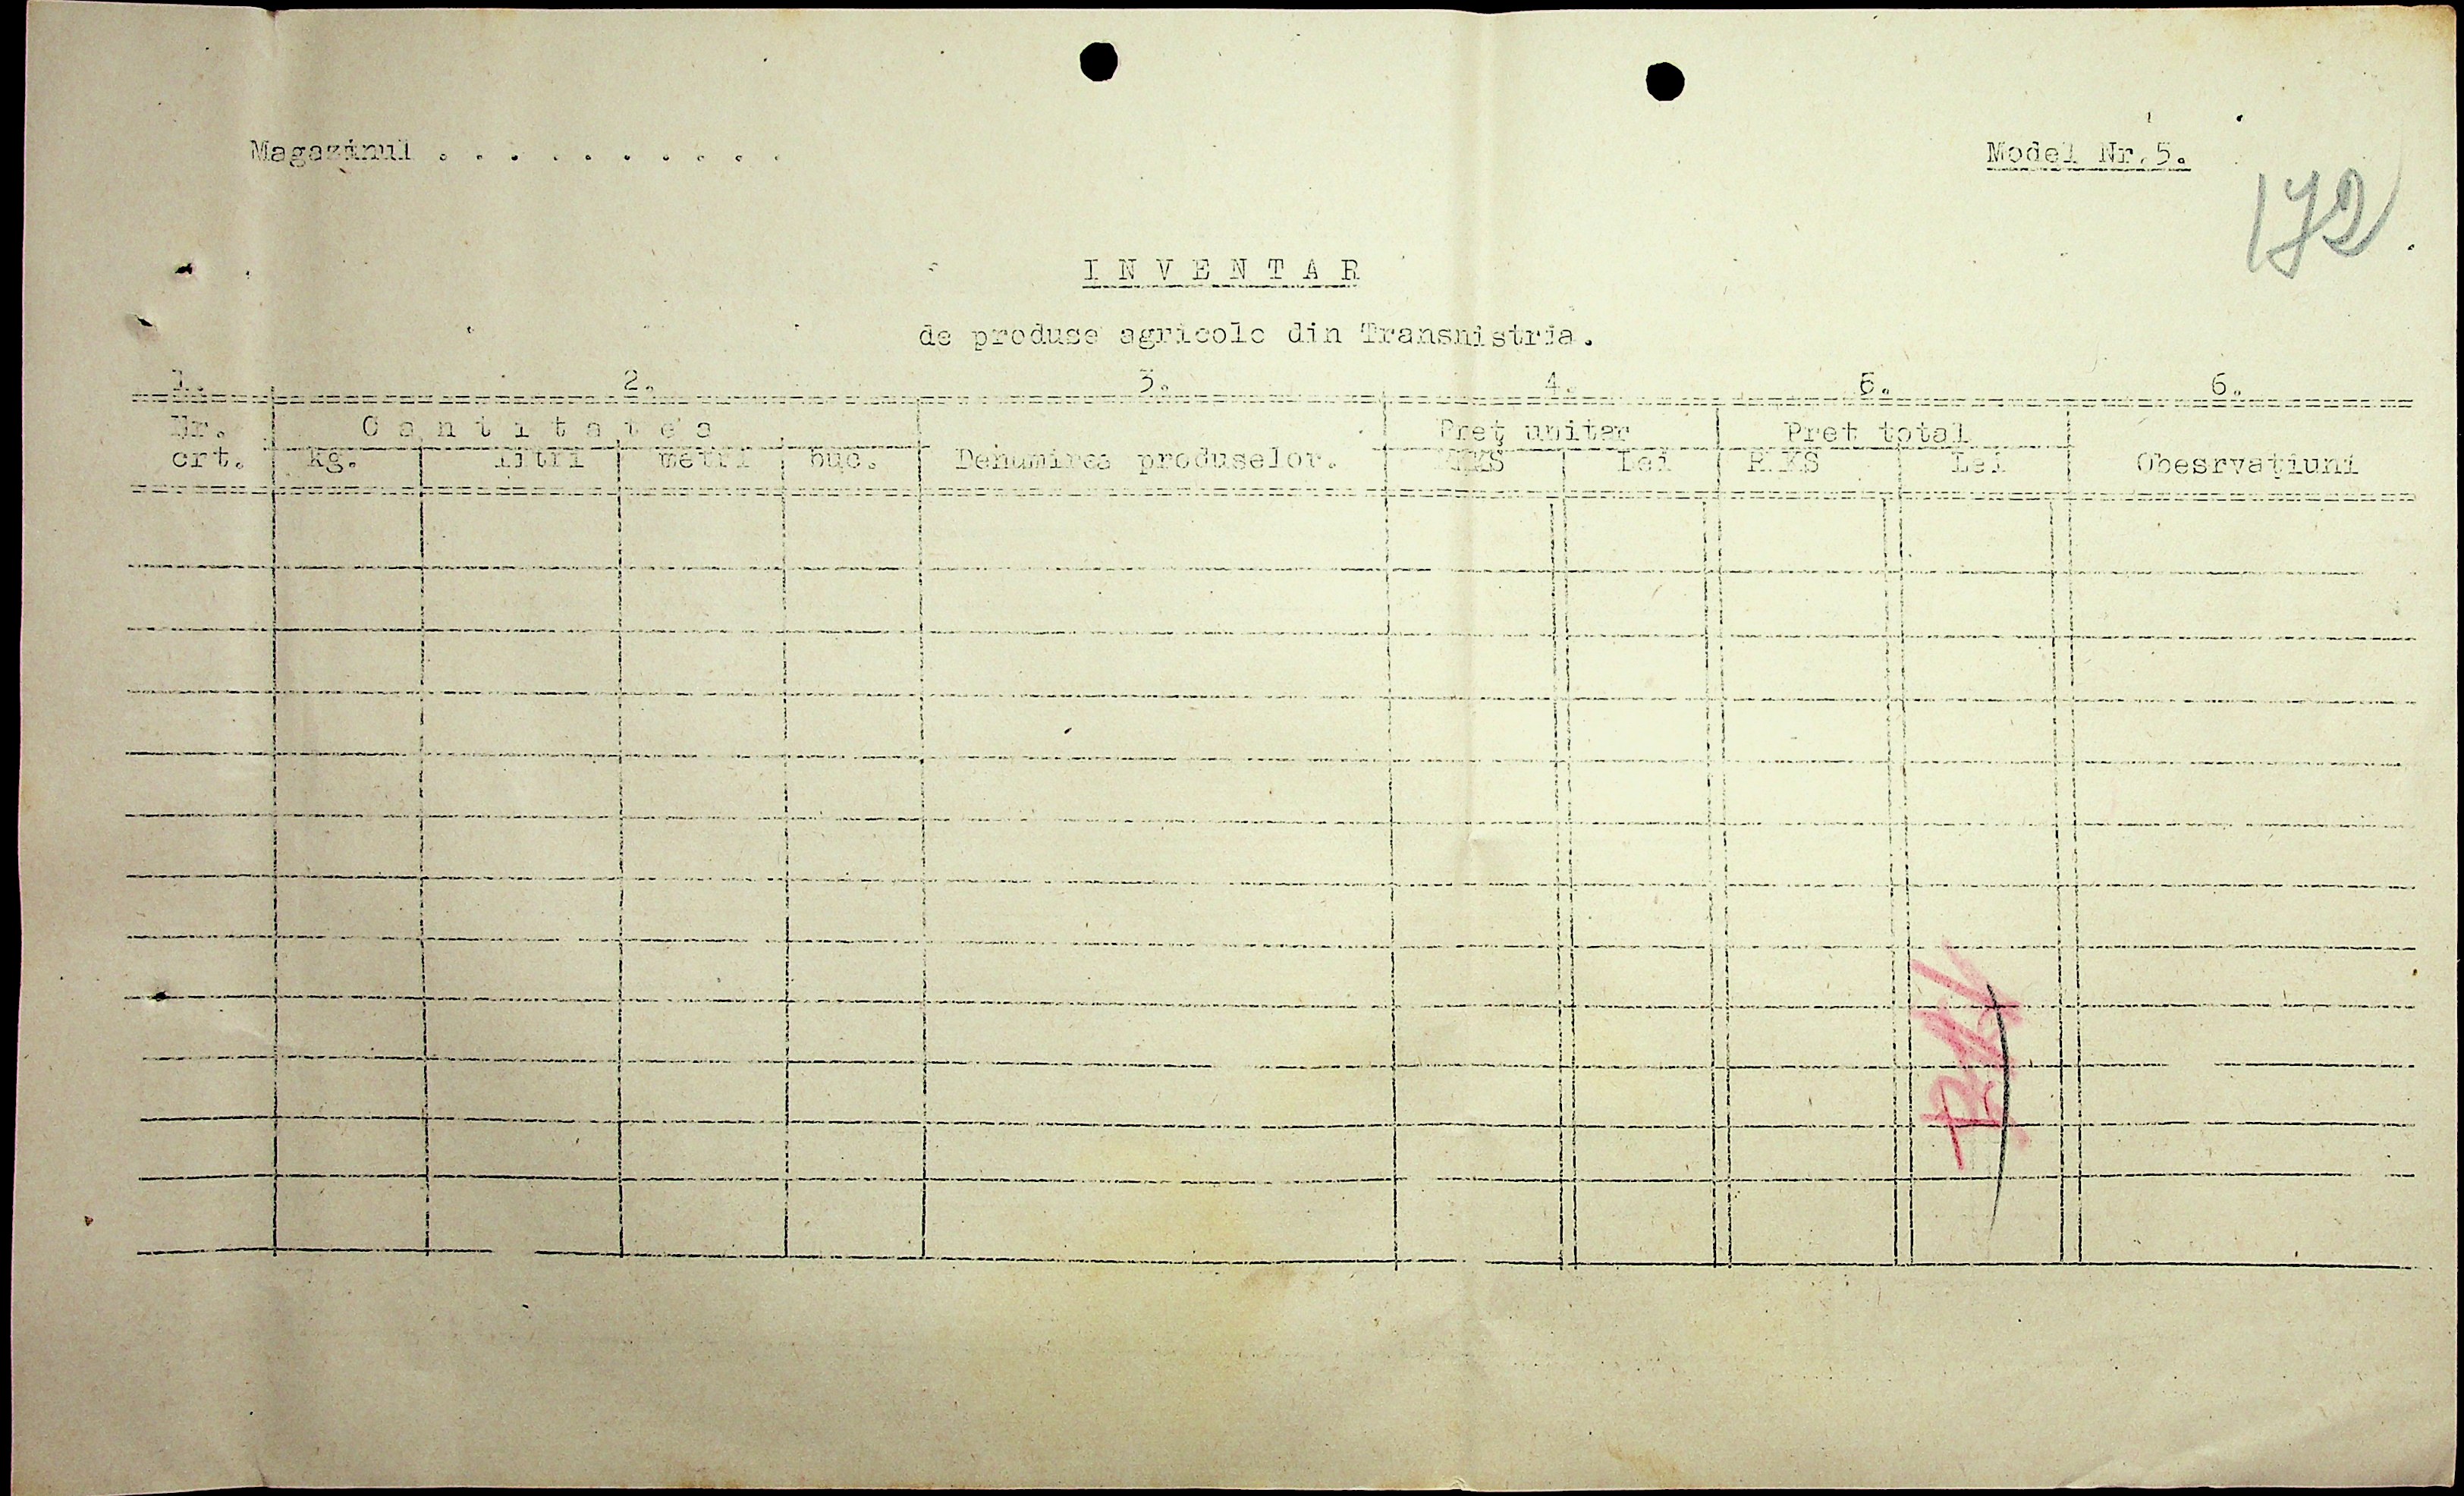 Magazinul . . . . . . . . . .
Model Nr.5.
172
I N V E N T A R
de produse agricole din Transnistria.
1. 2. 3. 4. 5. 6.
Nr. C a n t i t a t e a Preţ unitar Pret total
crt. kg. litri metri buc. Denumirea produselor. RKKS Lei RKKS Lei Obesrvaţiuni